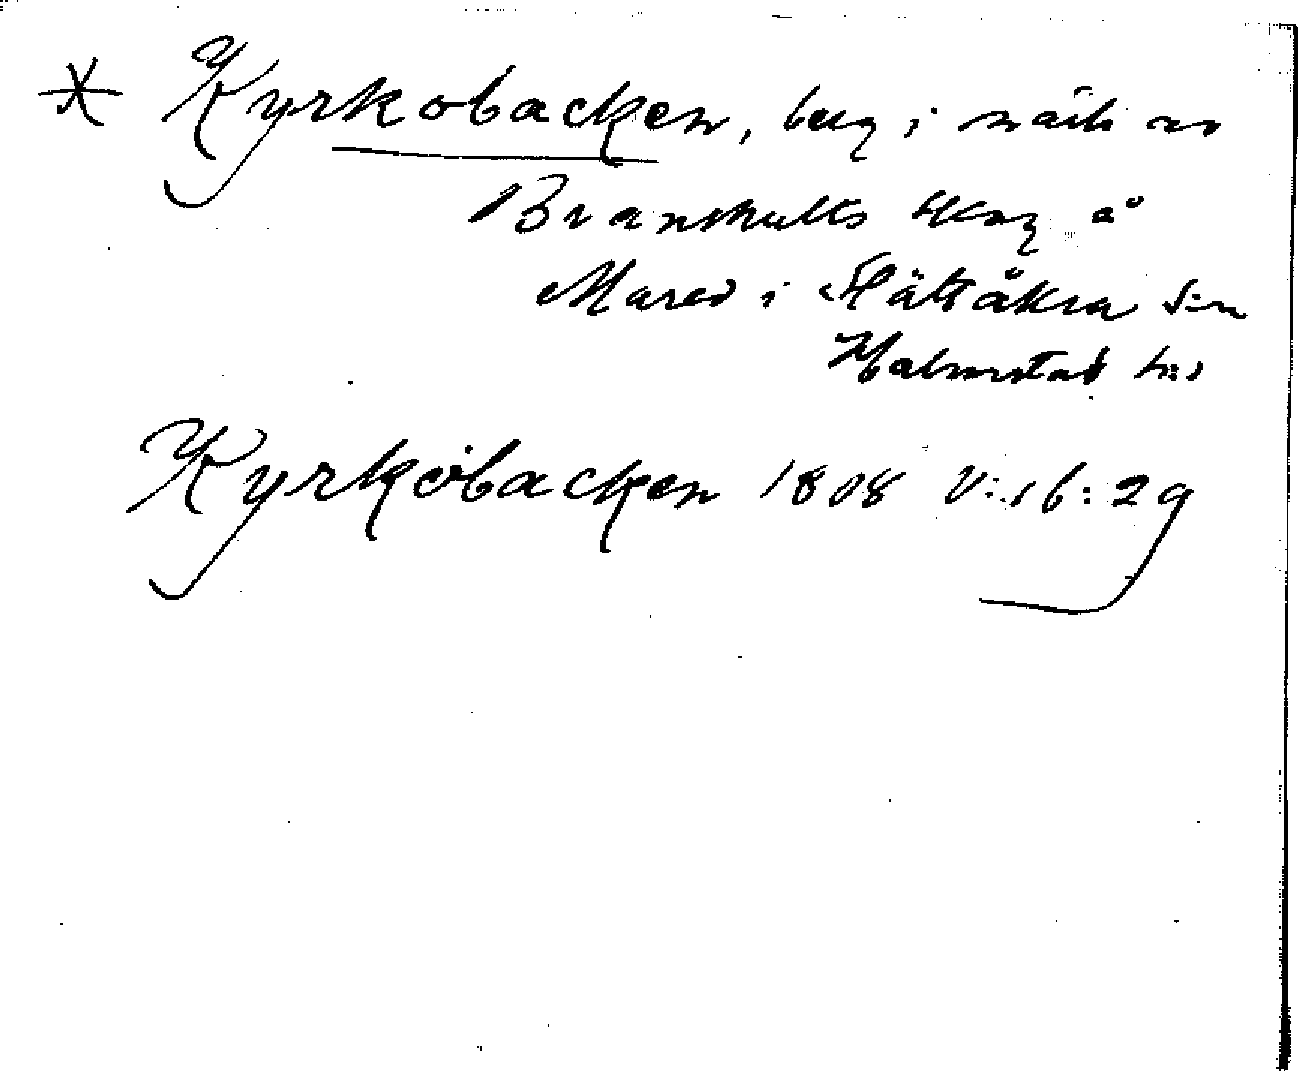 * Kyrkobacken, berg i närh av
Branshults skog å
Mared i Slättåkra sn
Halmstad h:d
Kyrkobacken 1808 V:16:29